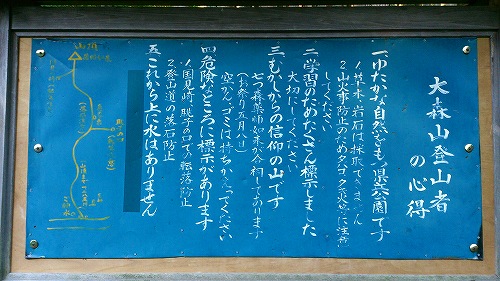 大森山登山者
の心得
一、ゆたかな自然をもつ県公園です
1.草木、岩石は採取できません
2.山火事防止のためタバコ、火気に注意
してください
二、学習のためたくさん標示しました
大切にしてください
三、むかしからの信仰の山です
七つ森薬師如来が合祠してあります
(お祭り五月八日)
空かん、ゴミは持ちかえってください
四、危険なところに標示があります
1.国見崎、覗の口での転落防止
2.登山道の落石防止
五、これから上に水はありません